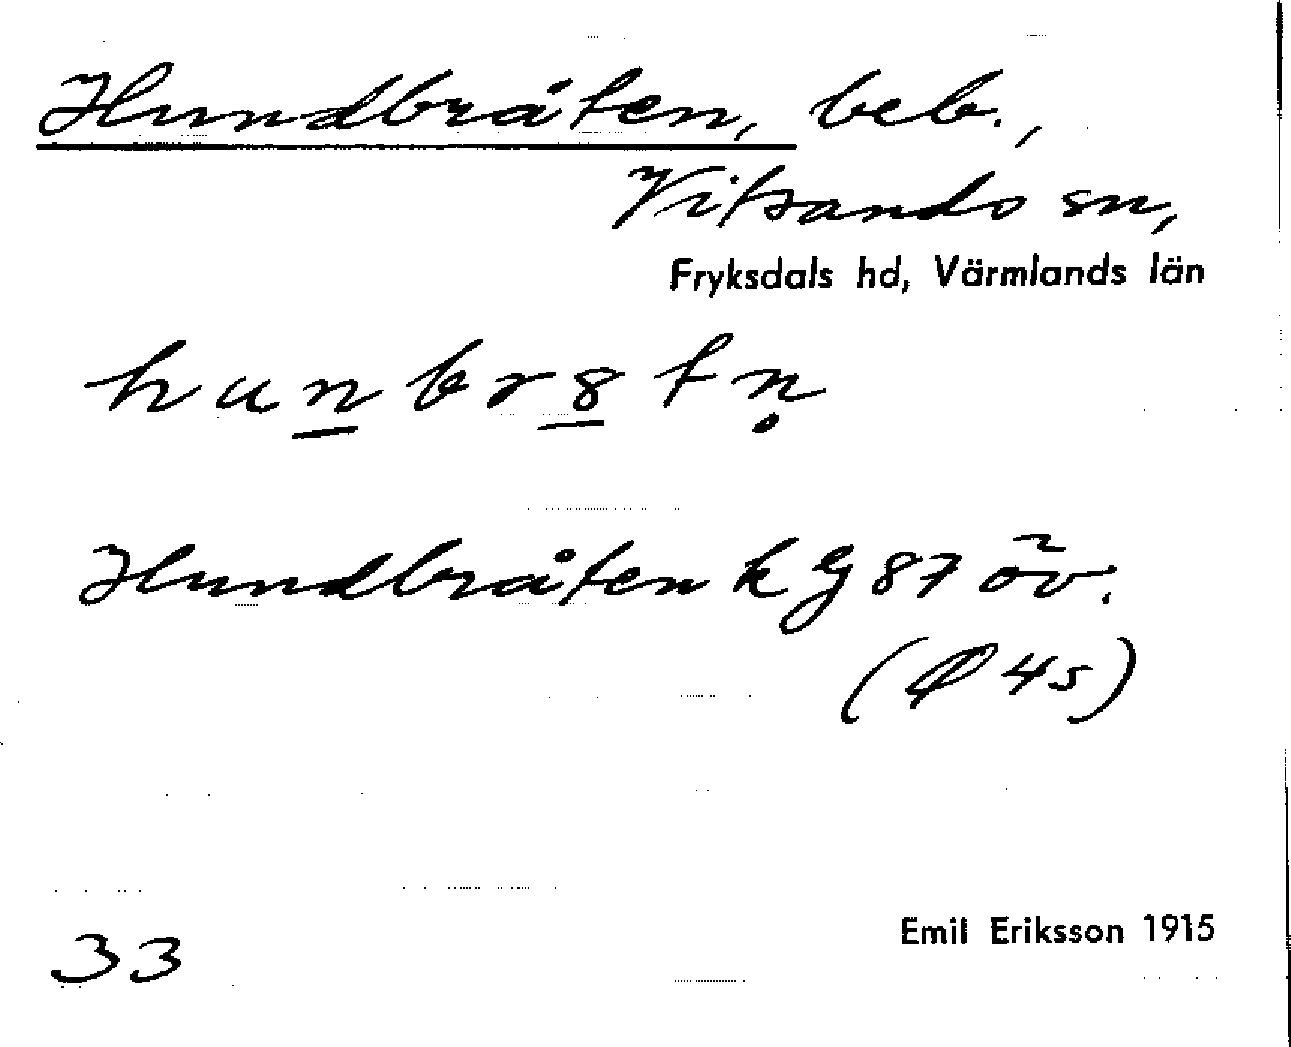 Hundbråten, beb.,
Vitsands sn,
Fryksdals hd, Värmlands län
h u n b r 8 t ṇ
Hundbråten k G 87 öv.
( 45)
33
Emil Eriksson 1915